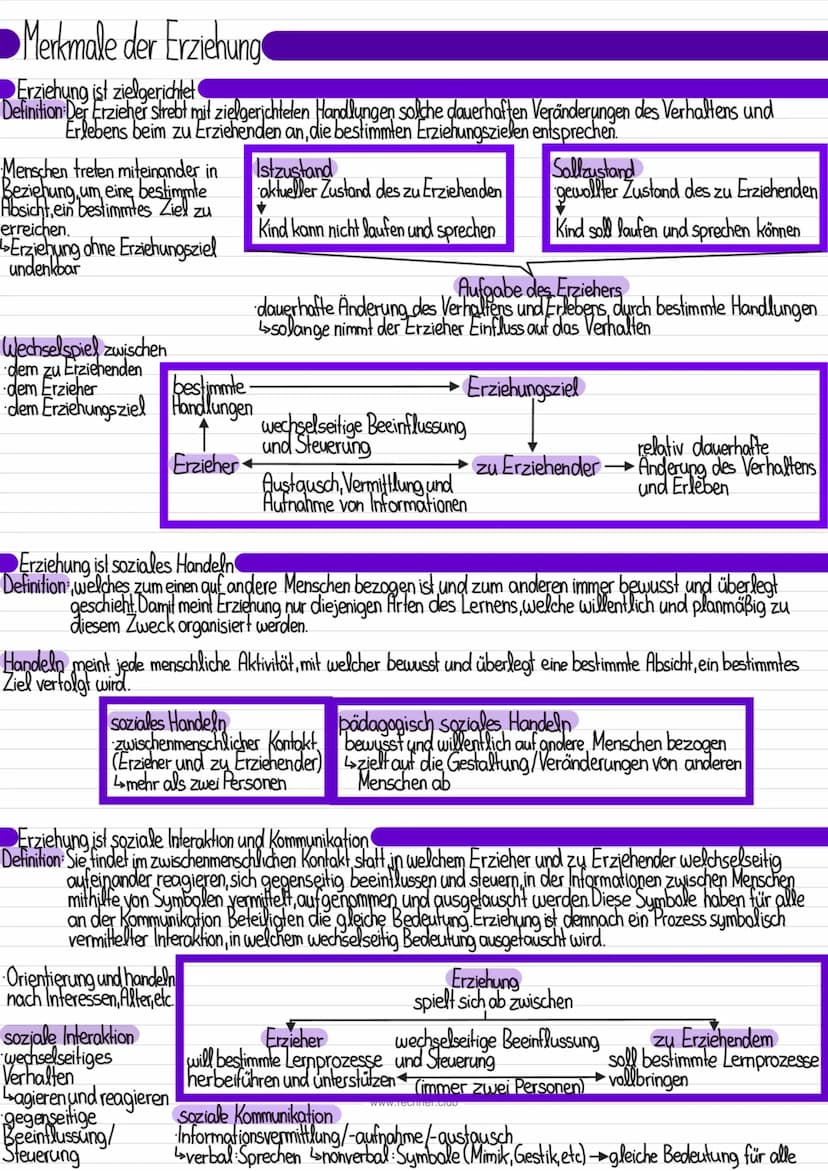 Merkmale der Erziehung
Erziehung ist zielgerichtet
Definition: Der Erzieher strebt mit zielgerichteten Handlungen solche dauerhaften Veränderungen des Verhaltens und
Erlebens beim zu Erziehenden an, die bestimmten Erziehungszielen entsprechen.
Menschen treten miteinander in
Beziehung, um eine bestimmte
Absicht, ein bestimmtes Ziel zu
erreichen.
↳Erziehung ohne Erziehungsziel
undenkbar
Istzustand
·aktueller Zustand des zu Erziehenden
↓
Kind kann nicht laufen und sprechen
Sollzustand
·gewollter Zustand des zu Erziehenden
↓
Kind soll laufen und sprechen können
Aufgabe des Erziehers
·dauerhafte Änderung des Verhaltens und Erlebens, durch bestimmte Handlungen
↳solange nimmt der Erzieher Einfluss auf das Verhalten
Wechselspiel zwischen
·dem zu Erziehenden
·dem Erzieher
·dem Erziehungsziel
bestimmte
Handlungen
Erziehungsziel
wechselseitige Beeinflussung
und Steuerung
Erzieher
zu Erziehender
Austausch, Vermittlung und
Aufnahme von Informationen
relativ dauerhafte
Änderung des Verhaltens
und Erleben
Erziehung ist soziales Handeln
Definition:, welches zum einen auf andere Menschen bezogen ist und zum anderen immer bewusst und überlegt
geschieht. Damit meint Erziehung nur diejenigen Arten des Lernens, welche willentlich und planmäßig zu
diesem Zweck organisiert werden.
Handeln meint jede menschliche Aktivität, mit welcher bewusst und überlegt eine bestimmte Absicht, ein bestimmtes
Ziel verfolgt wird.
soziales Handeln
·zwischenmenschlicher Kontakt
(Erzieher und zu Erziehender)
↳mehr als zwei Personen
pädagogisch soziales Handeln
bewusst und willentlich auf andere Menschen bezogen
↳zielt auf die Gestaltung/Veränderungen von anderen
Menschen ab
Erziehung ist soziale Interaktion und Kommunikation
Definition: Sie findet im zwischenmenschlichen Kontakt statt, in welchem Erzieher und zu Erziehender welchselseitig
aufeinander reagieren, sich gegenseitig beeinflussen und steuern, in der Informationen zwischen Menschen
mithilfe von Symbolen vermittelt, aufgenommen und ausgetauscht werden. Diese Symbole haben für alle
an der Kommunikation Beteiligten die gleiche Bedeutung. Erziehung ist demnach ein Prozess symbolisch
vermittelter Interaktion, in welchem wechselseitig Bedeutung ausgetauscht wird.
·Orientierung und handeln
nach Interessen, Alter, etc.
soziale Interaktion
·wechselseitiges
Verhalten
↳agieren und reagieren
·gegenseitige
Beeinflussung/
Steuerung
Erziehung
spielt sich ab zwischen
Erzieher
will bestimmte Lernprozesse
herbeiführen und unterstützen
wechselseitige Beeinflussung
und Steuerung
(immer zwei Personen)
zu Erziehendem
soll bestimmte Lernprozesse
vollbringen
soziale Kommunikation
·Informationsvermittlung/-aufnahme/-austausch
↳verbal: Sprechen ↳nonverbal: Symbole (Mimik, Gestik, etc) → gleiche Bedeutung für alle